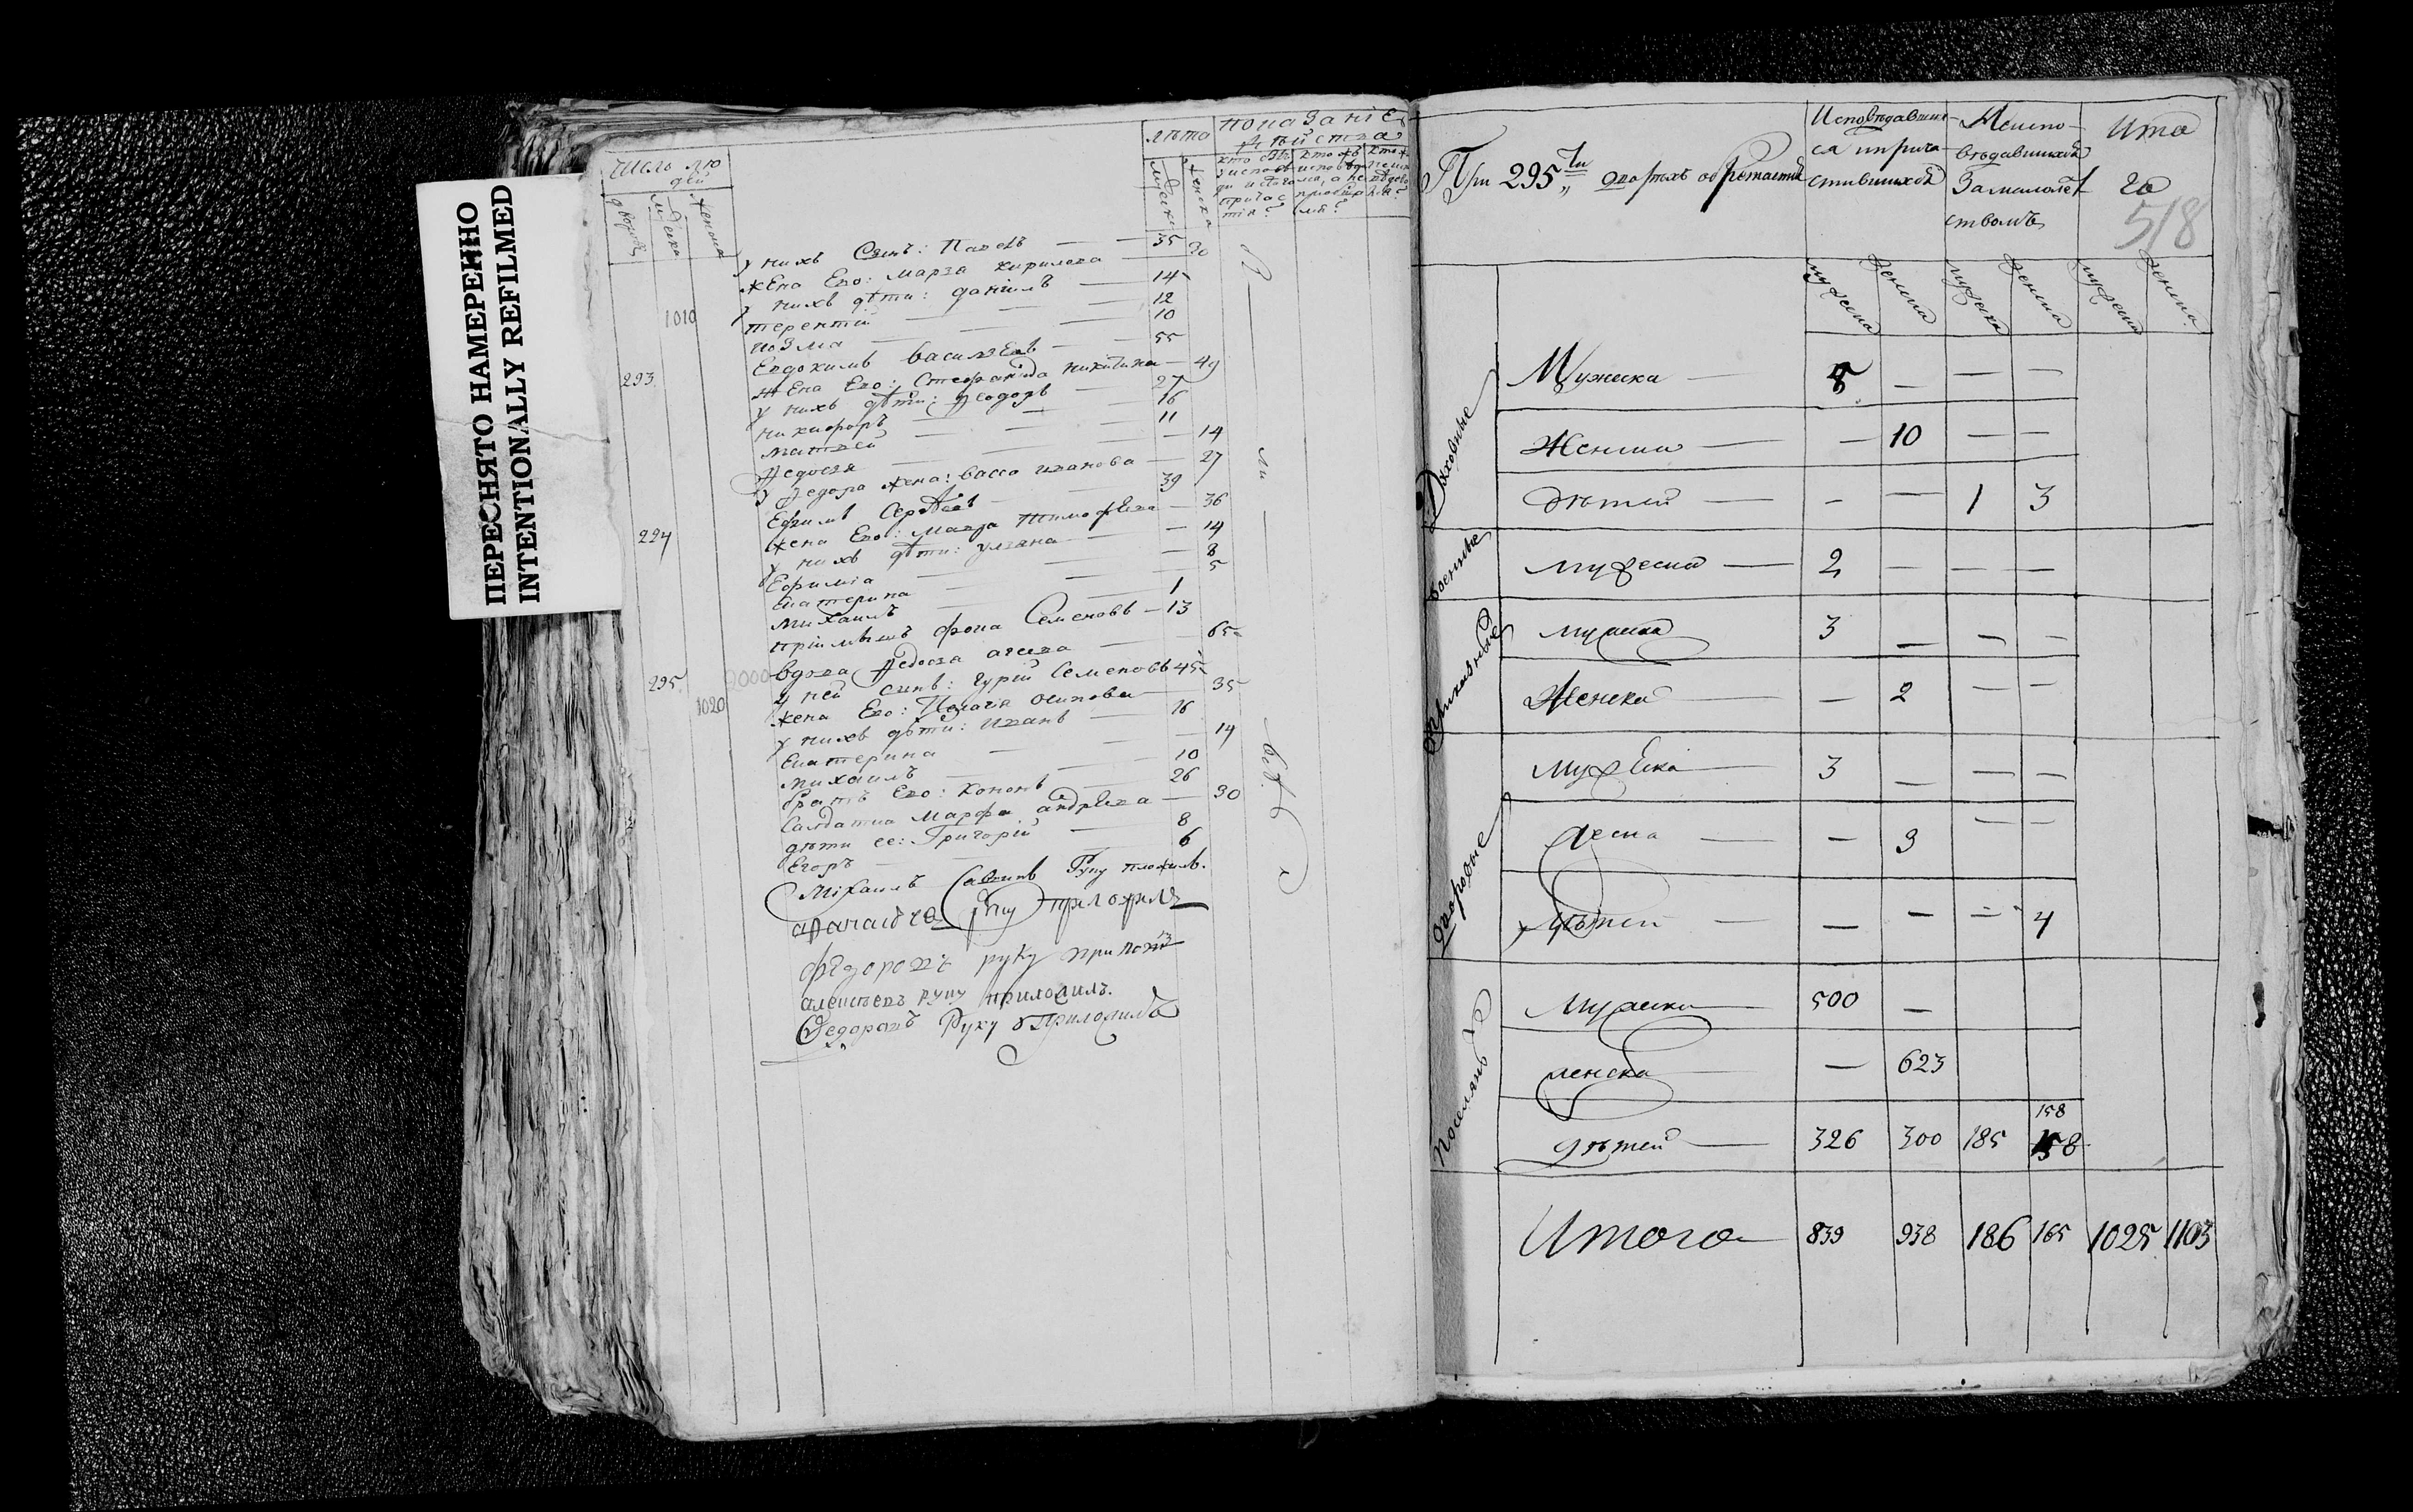 ПЕРЕСНЯТО НАМЕРЕННО
INTENTIONALLY REFILMED
Число лю
дей
дворовъ
мужеска
женска
лѣта
мужеска
женска
показаніе
дѣйства
1010
293
224
295
2000
1020
у нихъ Сынъ: Павелъ — 35
жена Его: Марѳа кирилова — 30
у нихъ дѣти: данилъ — 14
терентій — 12
козма — 10
Евдокимъ василЕвъ — 55
жена Его: Стефанида никитина — 49
у нихъ дѣти: Ѳеодоръ — 27
никифоръ — 16
матвей — 11
Ѳедосья — 14
у Ѳедора жена: васса иванова — 27
Ефимъ Сергѣевъ — 39
жена Его: Мавра тимофѣева — 36
у нихъ дѣти: улияна — 14
Ефимія — 8
Екатерина — 5
михаилъ — 1
пріимышъ фока Семеновъ — 13
вдова Ѳедосья — 65
у ней сынъ: гурій Семеновъ 45
жена Его: Пелагія осипова — 35
у нихъ дѣти: иванъ — 16
Екатерина — 14
михаилъ — 10
братъ Его: кононъ — 26
Салдатка Марфа андрѣева — 30
дѣти ее: Григорій — 8
Егоръ — 6
Михаилъ Савинъ Руку пложилъ.
руку приложилъ
фѣдоровъ руку прилож
алексѣевъ руку приложилъ.
Ѳедоровъ Руку приложилъ
При 295ти дворѣхъ обрѣтается
Исповѣдавших
ся и прича
стившихся
Неиспо
вѣдавшихся
За малолѣт
ствомъ
Ито
го
518
мужеска женска мужеска женска мужеска женска
Духовные
Мужеска — 8 — — —
Женска — — 10 — —
дѣтей — — — 1 3
военные
мужеска — 2 — — —
приказные
мужеска 3 — — —
Женска — — 2 — —
дворовые
мужЕска — 3 — — —
женска — — 3 — —
дѣтей — — — — 4
поселянъ
мужеска — 500 —
женска — — 623
158
дѣтей — 326 300 185 158
Итого — 839 938 186 165 1025 1103